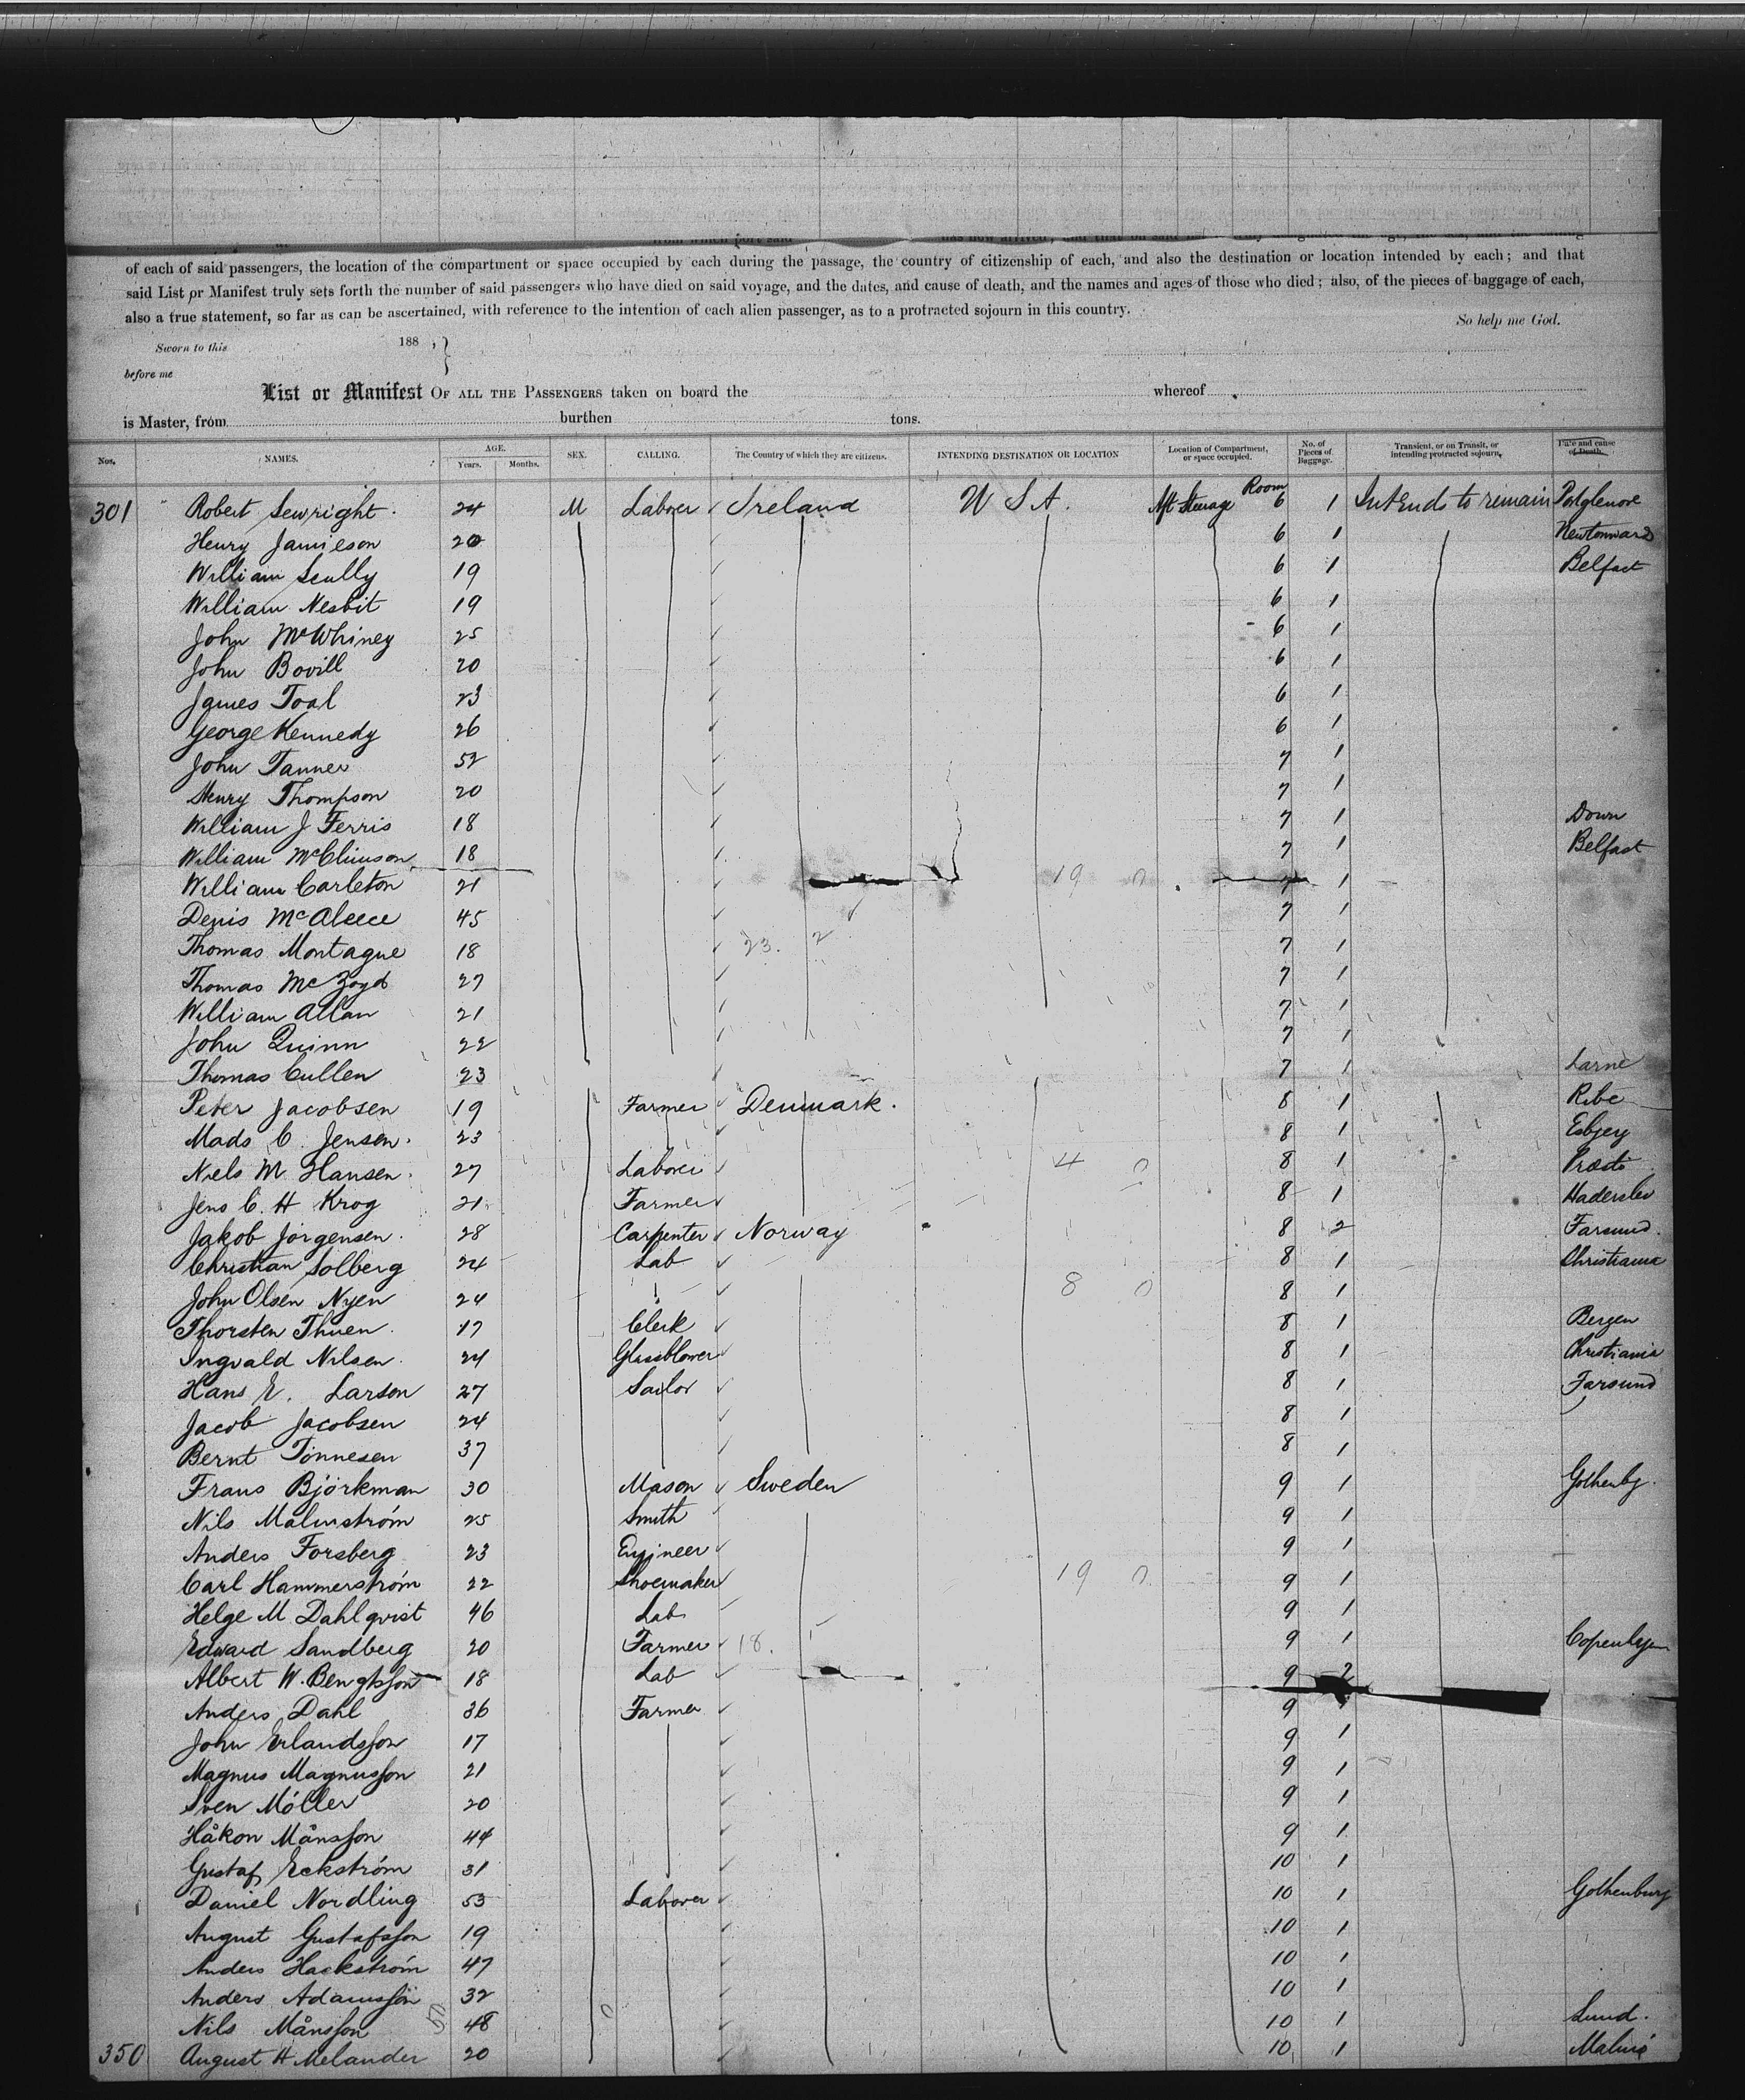 of each of said passengers, the location of the compartment or space occupied by each during the passage, the country of citizenship of each, and also the destination or location intended by each; and that
said List or Manifest truly sets forth the number of said passengers who have died on said voyage, and the dates, and cause of death, and the names and ages of those who died; also, of the pieces of baggage of each,
also a true statement, so far as can be ascertained, with reference to the intention of each alien passenger, as to a protracted sojourn in this country.
So help me God.
Sworn to this 188 , }
before me
List or Manifest OF ALL THE PASSENGERS taken on board the whereof
is Master, from burthen tons.
Nos. NAMES. AGE. Years. Months. SEX. CALLING. The Country of which they are citizens. INTENDING DESTINATION OR LOCATION Location of Compartment, or space occupied. No. of Pieces of Baggage. Transient, or on Transit, or intending protracted sojourn. Date and cause of Death.
301 Robert Sewright 24 M Laborer Ireland U S A. Aft Steerage Room 6 1 Intends to remain Portglenore
Henry Jamieson 20 6 1 Newtonward
William Scully 19 6 1 Belfast
William Nesbit 19 6 1
John McWhiney 25 6 1
John Bovill 20 6 1
James Toal 23 6 1
George Kennedy 26 6 1
John Tanner 52 7 1
Henry Thompson 20 7 1
William J Ferris 18 7 1 Down
William McClimson 18 7 1 Belfast
William Carleton 21 19 0 7 1
Denis McAleece 45 7 1
Thomas Montague 18 23. 2 7 1
Thomas Mc Zoyd 27 7 1
William Allan 21 7 1
John Quinn 22 7 1
Thomas Cullen 23 7 1 Larne
Peter Jacobsen 19 Farmer Denmark. 8 1 Ribe
Mads C. Jensen. 23 8 1 Esbjerg
Niels M. Hansen. 27 Laborer 4 0 8 1 Præstö
Jens C. H Krog 21 Farmer 8 1 Haderslev
Jakob Jörgensen. 28 Carpenter Norway 8 2 Farsund.
Christian Solberg 24 Lab 8 1 Christiania
John Olsen Nyen 24 8 0 8 1
Thorsten Thuen. 17 Clerk 8 1 Bergen
Ingvald Nilsen. 24 Glassblower 8 1 Christiania
Hans E. Larson 27 Sailor 8 1 Farsund
Jacob Jacobsen 24 8 1
Bernt Tönnesen 37 8 1
Frans Björkman 30 Mason Sweden 9 1 Gothenbg.
Nils Malmström 25 Smith 9 1
Anders Forsberg 23 Engineer 9 1
Carl Hammerström 22 Shoemaker 19 0 9 1
Helge M Dahlqvist 46 Lab 9 1
Edward Sandberg 20 Farmer 18. 1 9 1 Copenhgen
Albert W. Bengtsson 18 Lab 9 2
Anders Dahl 36 Farmer 9
John Erlandsson 17 9 1
Magnus Magnusson 21 9 1
Sven Möller 20 9 1
Håkon Månsson 44 9 1
Gustaf Eckström 31 10 1
Daniel Nordling 53 Laborer 10 1 Gothenburg
August Gustafsson 19 10 1
Anders Hackström 47 10 1
Anders Adamsson 32 10 1
Nils Månsson 50 48 0 10 1 Lund.
350 August H Melander 20 10 1 Malmö